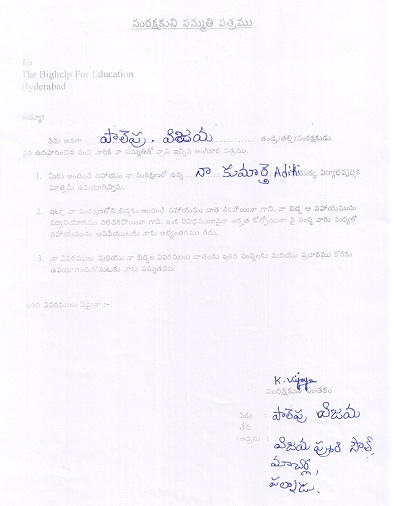 సంరక్షకుని సమ్మతి పత్రము
To
The Bighelp For Education
Hyderabad
అయ్యా!
నేను అనగా పాలెపు. విజయ తండ్రి/తల్లి/సంరక్షకుడు
పైన ఉదహరించిన సంస్థ వారికి నా సమ్మతితో వ్రాసి ఇచ్చిన అంగీకార పత్రము.
1. మీరు అందించే సహాయం నా సంరక్షణలో ఉన్న నా కుమార్తె Aditi యొక్క విద్యాభివృద్ధికి
మాత్రమే ఉపయోగిస్తాను.
2. ఇట్లా నా సంరక్షణలోని బిడ్డకు అందించే సహాయము దాత ఇవ్వకపోయినా గాని, నా బిడ్డ ఆ సహాయమును
సద్వినియోగము పరచకపోయినా గాని, ఇంకే విధముగానైనా అర్హత కోల్పోయినా పై సంస్థ వారు మధ్యలో
సహాయమును ఆపివేయుటకు నాకు అభ్యంతరము లేదు.
3. నా వివరములు మరియు నా బిడ్డల వివరములు దాతలకు ఇతర సంస్థలకు మరియు ప్రచారము కొరకు
ఉపయోగించుకొనుటకు నాకు సమ్మతము.
ఇతర వివరములు ఏమైనా :-
K. Vijaya
సంరక్షకుని సంతకం
పేరు : పాలెపు విజయ
తేదీ :
అడ్రసు : విజయ పురి సౌత్,
మాచర్ల,
పల్నాడు.